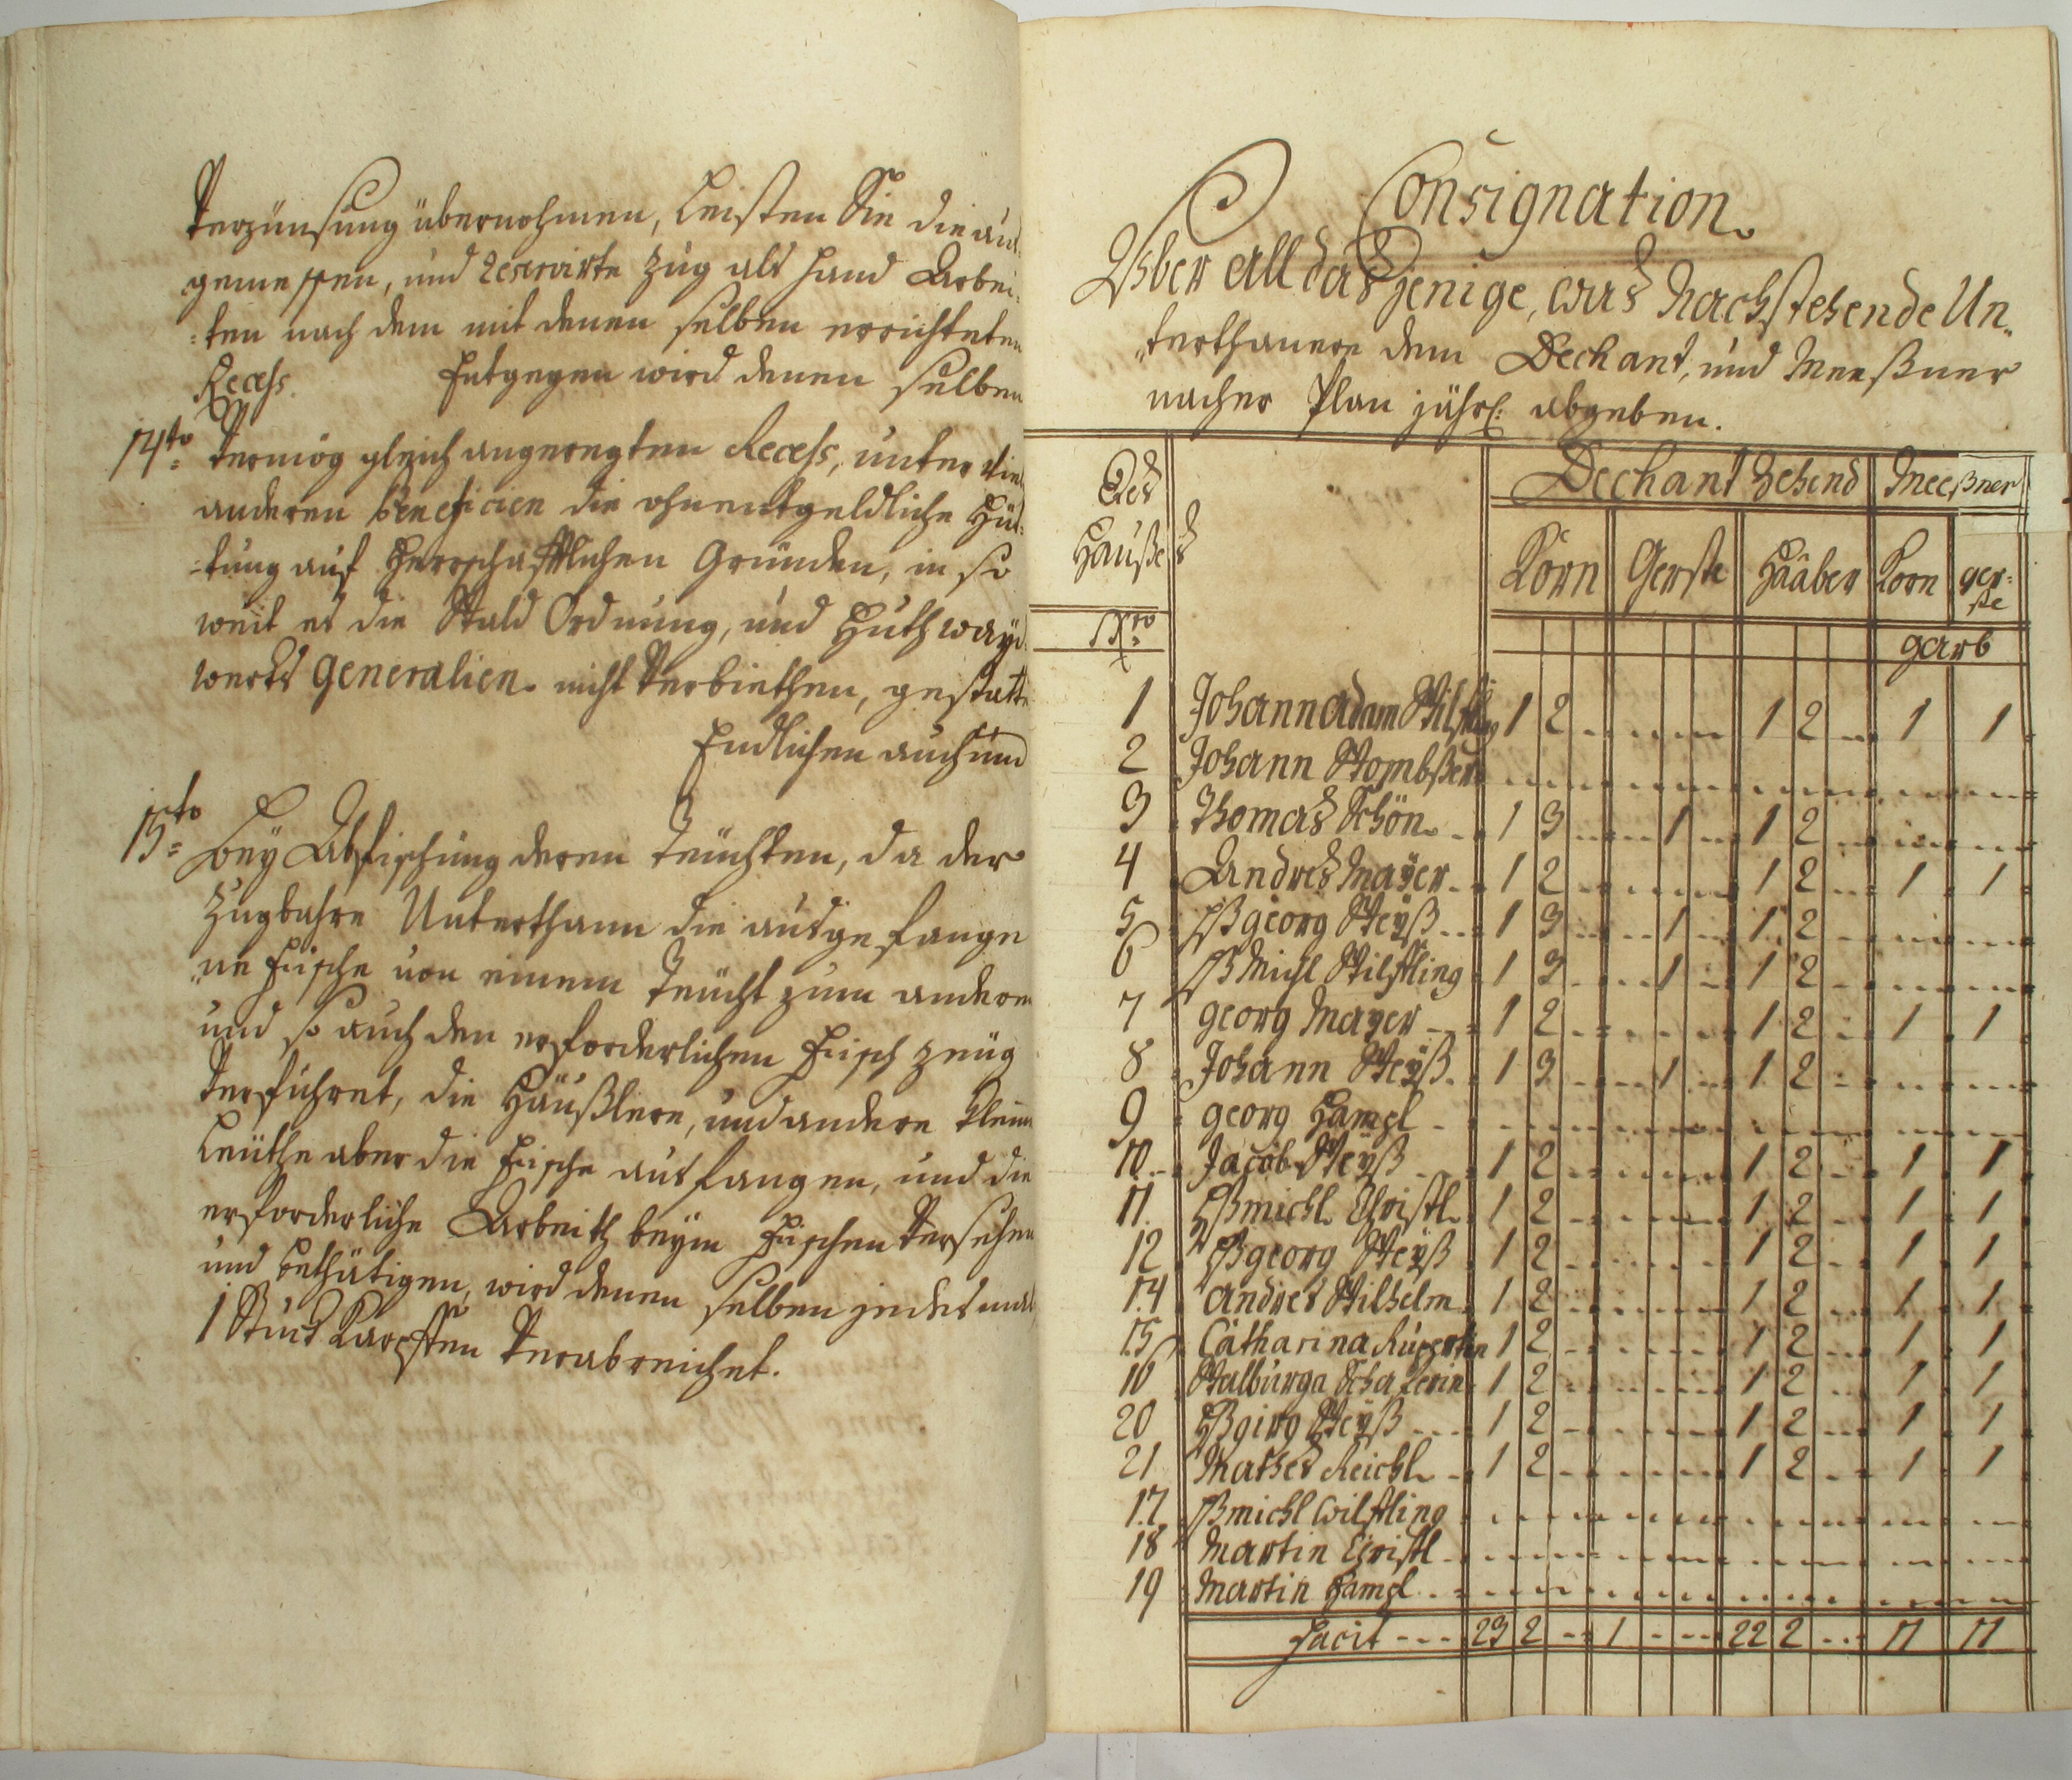 Verzünsung übernohmen, Leisten Sie die aus
gemessen, und reservirte Zug als Hand Arbei:
:ten nach dem mit denen selben errichteten
Recess. Entgegen wird denen selben
14to Vermög gleich angeregten Recess, unter die
anderen beneficien die ohnentgeldliche Hüt:
:tung auf Herrschafftlichen Gründen, in so
weit es die Wald Ordnung, und Huthwayd
werks Generalien nicht Verbiethen, gestatt
Endlichen auch und
15to Bey Abfischung deren Teüchten, da der
Zugbahre Unterthann die ausgefange
„ne Fische von einem Teücht zum anderen
und so auch den erforderlichen Fisch zeüg
Verführet, die Häußlere, und andere kleine
Leüthe aber die Fische ausfangen, und die
erforderliche Arbeith beym Fischen Versehen
und bethätigen, wird denen selben jedesmal
1 Stück Karpffen Verabreichet.
Consignation
Über all das jenige, was Nachstehende Un„
„terthanere dem Dechant, und Meeßner
nacher Plan jährl: abgeben.
Des Haußes Nro Dechant Zehend Meeßner
Korn Gerste Haaber Korn ger: ste
garb
1 Johann adam Wilfling 1 2 1 2 1 1
2 Johann
3 Thomas Schön 1 3 1 1 2
4 Andres Mayer 1 2 1 2 1 1
5 Hß georg Weyß 1 3 1 1 2
6 Hß Michl Wilfling 1 3 1 1 2
7 georg Mayer 1 2 1 2 1 1
8 Johann Weyß 1 3 1 1 2
9 georg Hampl
10 Jacob Weyß 1 2 1 2 1 1
11 Hß michl Christl 1 2 1 2 1 1
12 Hß georg Weyß 1 2 1 2 1 1
14 Andres Wilhelm 1 2 1 2 1 1
15 Catharina Ruppertin 1 2 1 2 1 1
16 Walburga 1 2 1 2 1 1
20 Hß girg Weyß 1 2 1 2 1 1
21 Mathes Reichl 1 2 1 2 1 1
17 Hß michl Wilfling
18 Martin Christl
19 Martin Hampl
Facit 23 2 1 22 2 11 11